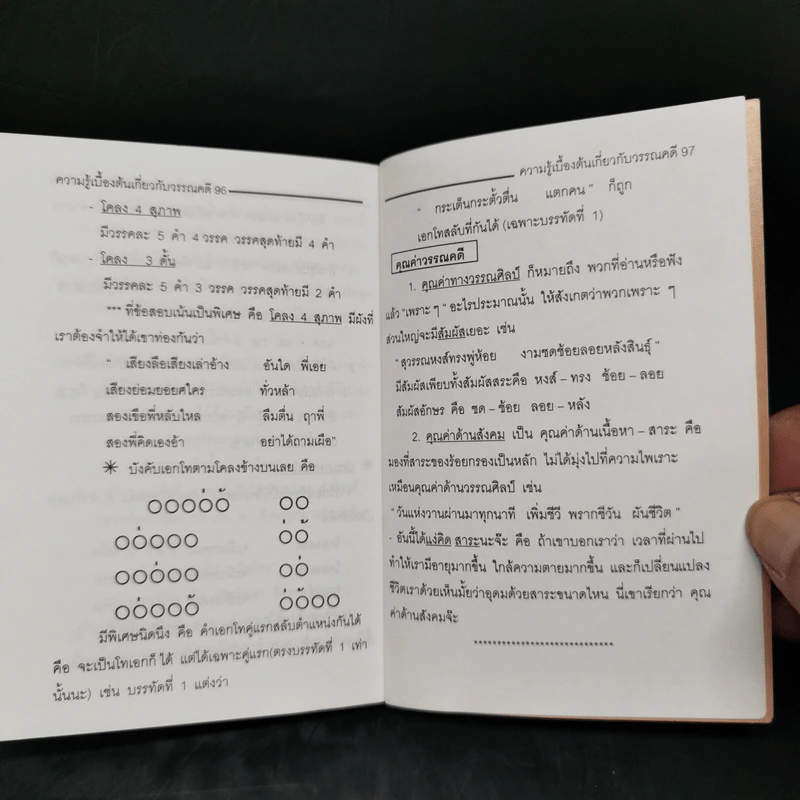 ความรู้เบื้องต้นเกี่ยวกับวรรณคดี 96
- โคลง 4 สุภาพ
มีวรรคละ 5 คำ 4 วรรค วรรคสุดท้ายมี 4 คำ
- โคลง 3 ดั้น
มีวรรคละ 5 คำ 3 วรรค วรรคสุดท้ายมี 2 คำ
*** ที่ข้อสอบเน้นเป็นพิเศษ คือ โคลง 4 สุภาพ มีผังที่
เราต้องจำให้ได้เขาท่องกันว่า
" เสียงลือเสียงเล่าอ้าง อันใด พี่เอย
เสียงย่อมยอยศใคร ทั่วหล้า
สองเขือพี่หลับใหล ลืมตื่น ฤาพี่
สองพี่คิดเองอ้า อย่าได้ถามเผือ"
* บังคับเอกโทตามโคลงข้างบนเลย คือ
○○○○่○้ ○○
○○่○○○ ○่○้
○○○่○○ ○○่
○○่○○○้ ○่○้○○
มีพิเศษนิดนึง คือ คำเอกโทคู่แรกสลับตำแหน่งกันได้
คือ จะเป็นโทเอกก็ได้ แต่ได้เฉพาะคู่แรก(ตรงบรรทัดที่ 1 เท่า
นั้นนะ) เช่น บรรทัดที่ 1 แต่งว่า
ความรู้เบื้องต้นเกี่ยวกับวรรณคดี 97
" กระเต็นกระตั้วตื่น แตกคน " ก็ถูก
เอกโทสลับที่กันได้ (เฉพาะบรรทัดที่ 1)
คุณค่าวรรณคดี
1. คุณค่าทางวรรณศิลป์ ก็หมายถึง พวกที่อ่านหรือฟัง
แล้ว "เพราะ ๆ " อะไรประมาณนั้น ให้สังเกตว่าพวกเพราะ ๆ
ส่วนใหญ่จะมีสัมผัสเยอะ เช่น
"สุวรรณหงส์ทรงพู่ห้อย งามชดช้อยลอยหลังสินธุ์ "
มีสัมผัสเพียบทั้งสัมผัสสระคือ หงส์ – ทรง ช้อย – ลอย
สัมผัสอักษร คือ ชด – ช้อย ลอย – หลัง
2. คุณค่าด้านสังคม เป็น คุณค่าด้านเนื้อหา – สาระ คือ
มองที่สาระของร้อยกรองเป็นหลัก ไม่ได้มุ่งไปที่ความไพเราะ
เหมือนคุณค่าด้านวรรณศิลป์ เช่น
"วันแห่งวานผ่านมาทุกนาที เพิ่มชีวี พรากชีวัน ผันชีวิต "
- อันนี้ได้แง่คิด สาระนะจ๊ะ คือ ถ้าเขาบอกเราว่า เวลาที่ผ่านไป
ทำให้เรามีอายุมากขึ้น ใกล้ความตายมากขึ้น และก็เปลี่ยนแปลง
ชีวิตเราด้วยเห็นมั้ยว่าอุดมด้วยสาระขนาดไหน นี่เขาเรียกว่า คุณ
ค่าด้านสังคมจ๊ะ
******************************